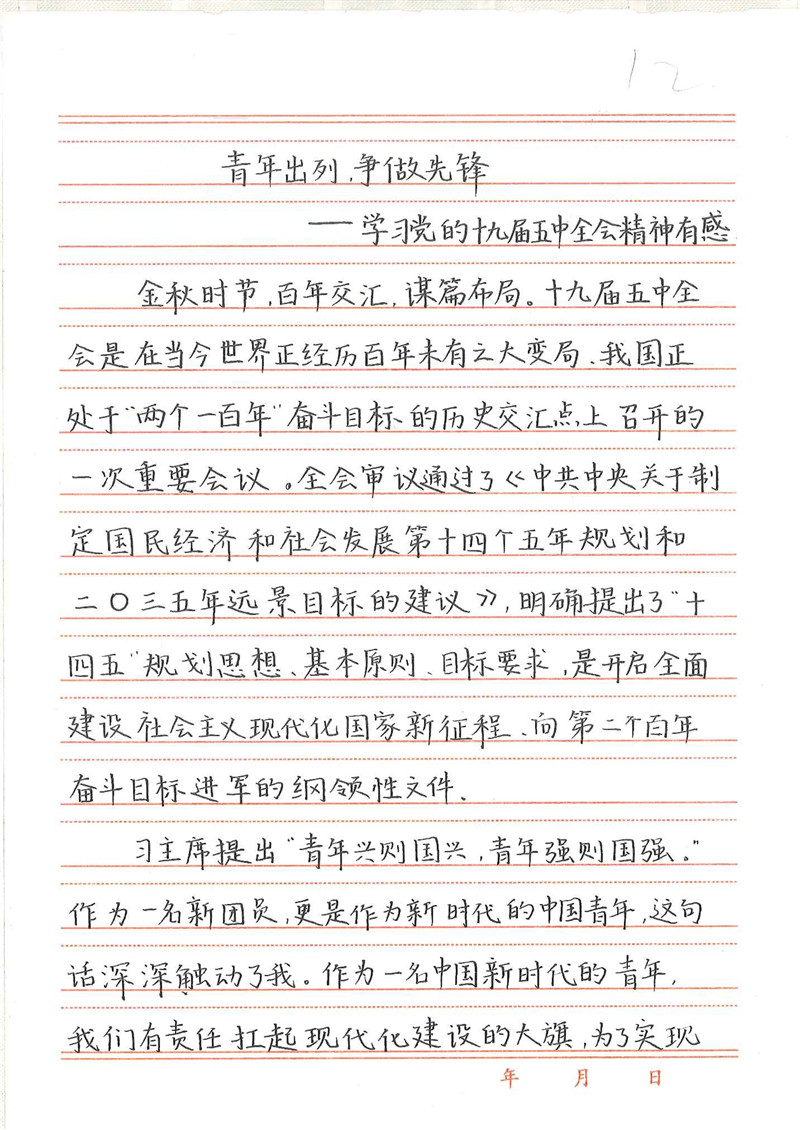 12
青年出列，争做先锋
——学习党的十九届五中全会精神有感
金秋时节，百年交汇，谋篇布局。十九届五中全
会是在当今世界正经历百年未有之大变局、我国正
处于“两个一百年”奋斗目标的历史交汇点上召开的
一次重要会议。全会审议通过了《中共中央关于制
定国民经济和社会发展第十四个五年规划和
二〇三五年远景目标的建议》，明确提出了“十
四五”规划思想、基本原则、目标要求，是开启全面
建设社会主义现代化国家新征程、向第二个百年
奋斗目标进军的纲领性文件、
习主席提出“青年兴则国兴，青年强则国强。”
作为一名新团员，更是作为新时代的中国青年，这句
话深深触动了我。作为一名中国新时代的青年，
我们有责任扛起现代化建设的大旗，为了实现
年 月 日